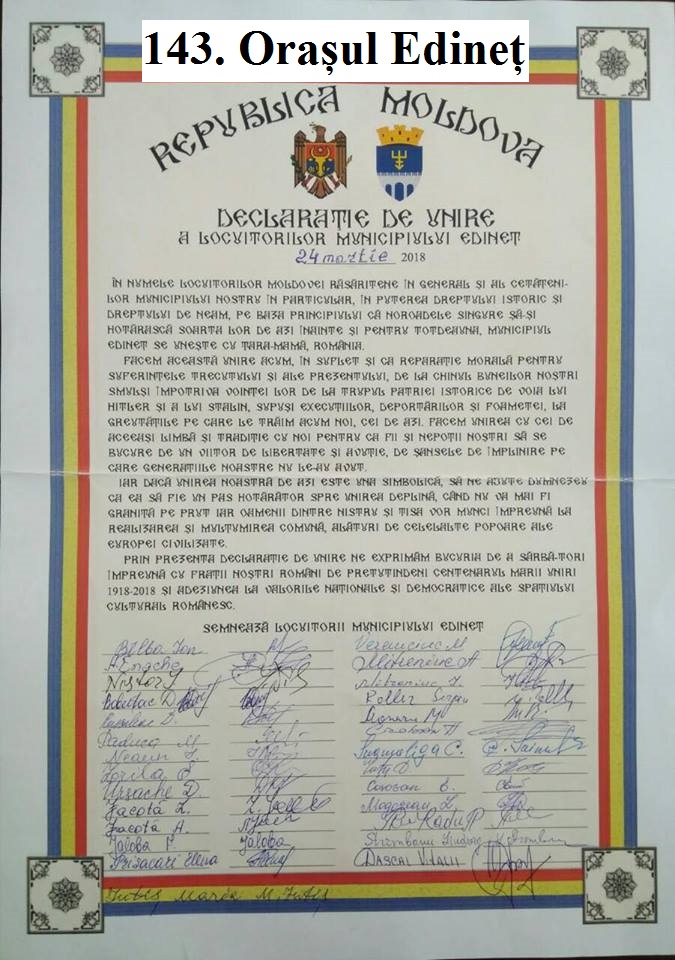 143. Orașul Edineț
REPUBLICA MOLDOVA
DECLARAȚIE DE UNIRE
A LOCUITORILOR MUNICIPIULUI EDINEȚ
24 martie 2018
ÎN NUMELE LOCUITORILOR MOLDOVEI RĂSĂRITENE ÎN GENERAL ȘI AL CETĂȚENI-
LOR MUNICIPIULUI NOSTRU ÎN PARTICULAR, ÎN PUTEREA DREPTULUI ISTORIC ȘI
DREPTULUI DE NEAM, PE BAZA PRINCIPIULUI CĂ NOROADELE SINGURE SĂ-ȘI
HOTĂRASCĂ SOARTA LOR DE AZI ÎNAINTE ȘI PENTRU TOTDEAUNA, MUNICIPIUL
EDINEȚ SE UNEȘTE CU ȚARA-MAMĂ, ROMÂNIA.
FACEM ACEASTĂ UNIRE ACUM, ÎN SUFLET ȘI CA REPARAȚIE MORALĂ PENTRU
SUFERINȚELE TRECUTULUI ȘI ALE PREZENTULUI, DE LA CHINUL BUNEILOR NOȘTRI
SMULȘI ÎMPOTRIVA VOINȚEI LOR DE LA TRUPUL PATRIEI ISTORICE DE VOIA LUI
HITLER ȘI A LUI STALIN, SUPUȘI EXECUȚIILOR, DEPORTĂRILOR ȘI FOAMETEI, LA
GREUTĂȚILE PE CARE LE TRĂIM ACUM NOI, CEI DE AZI. FACEM UNIREA CU CEI DE
ACEEAȘI LIMBĂ ȘI TRADIȚIE CU NOI PENTRU CA FII ȘI NEPOȚII NOȘTRI SĂ SE
BUCURE DE UN VIITOR DE LIBERTATE ȘI AVUȚIE, DE ȘANSELE DE ÎMPLINIRE PE
CARE GENERAȚIILE NOASTRE NU LE-AU AVUT.
IAR DACĂ UNIREA NOASTRĂ DE AZI ESTE UNA SIMBOLICĂ, SĂ NE AJUTE DUMNEZEU
CA EA SĂ FIE UN PAS HOTĂRÂTOR SPRE UNIREA DEPLINĂ, CÂND NU VA MAI FI
GRANIȚĂ PE PRUT IAR OAMENII DINTRE NISTRU ȘI TISA VOR MUNCI ÎMPREUNĂ LA
REALIZAREA ȘI MULȚUMIREA COMUNĂ, ALĂTURI DE CELELALTE POPOARE ALE
EUROPEI CIVILIZATE.
PRIN PREZENTA DECLARAȚIE DE UNIRE NE EXPRIMĂM BUCURIA DE A SĂRBĂ-TORI
ÎMPREUNĂ CU FRAȚII NOȘTRI ROMÂNI DE PRETUTINDENI CENTENARUL MARII UNIRI
1918-2018 ȘI ADEZIUNEA LA VALORILE NAȚIONALE ȘI DEMOCRATICE ALE SPAȚIULUI
CULTURAL ROMÂNESC.
SEMNEAZĂ LOCUITORII MUNICIPIULUI EDINEȚ
Bălba Ion
Enache
Nistor
Păduca M.
Neamu
Zorilă
Ursache D.
Iacotă L.
Iacotă A.
Ialoba Ialoba
Prisacari Elena
Mitreniuc A
Roller Sergiu
C.
Radu P
DASCAL VITALII
Maria M.